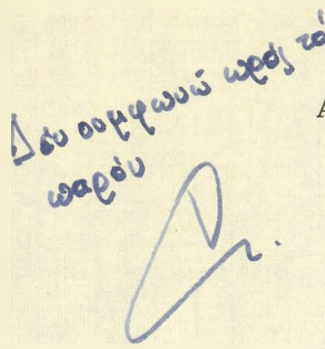 Δέν συμφωνώ πρός τό
παρόν
Α